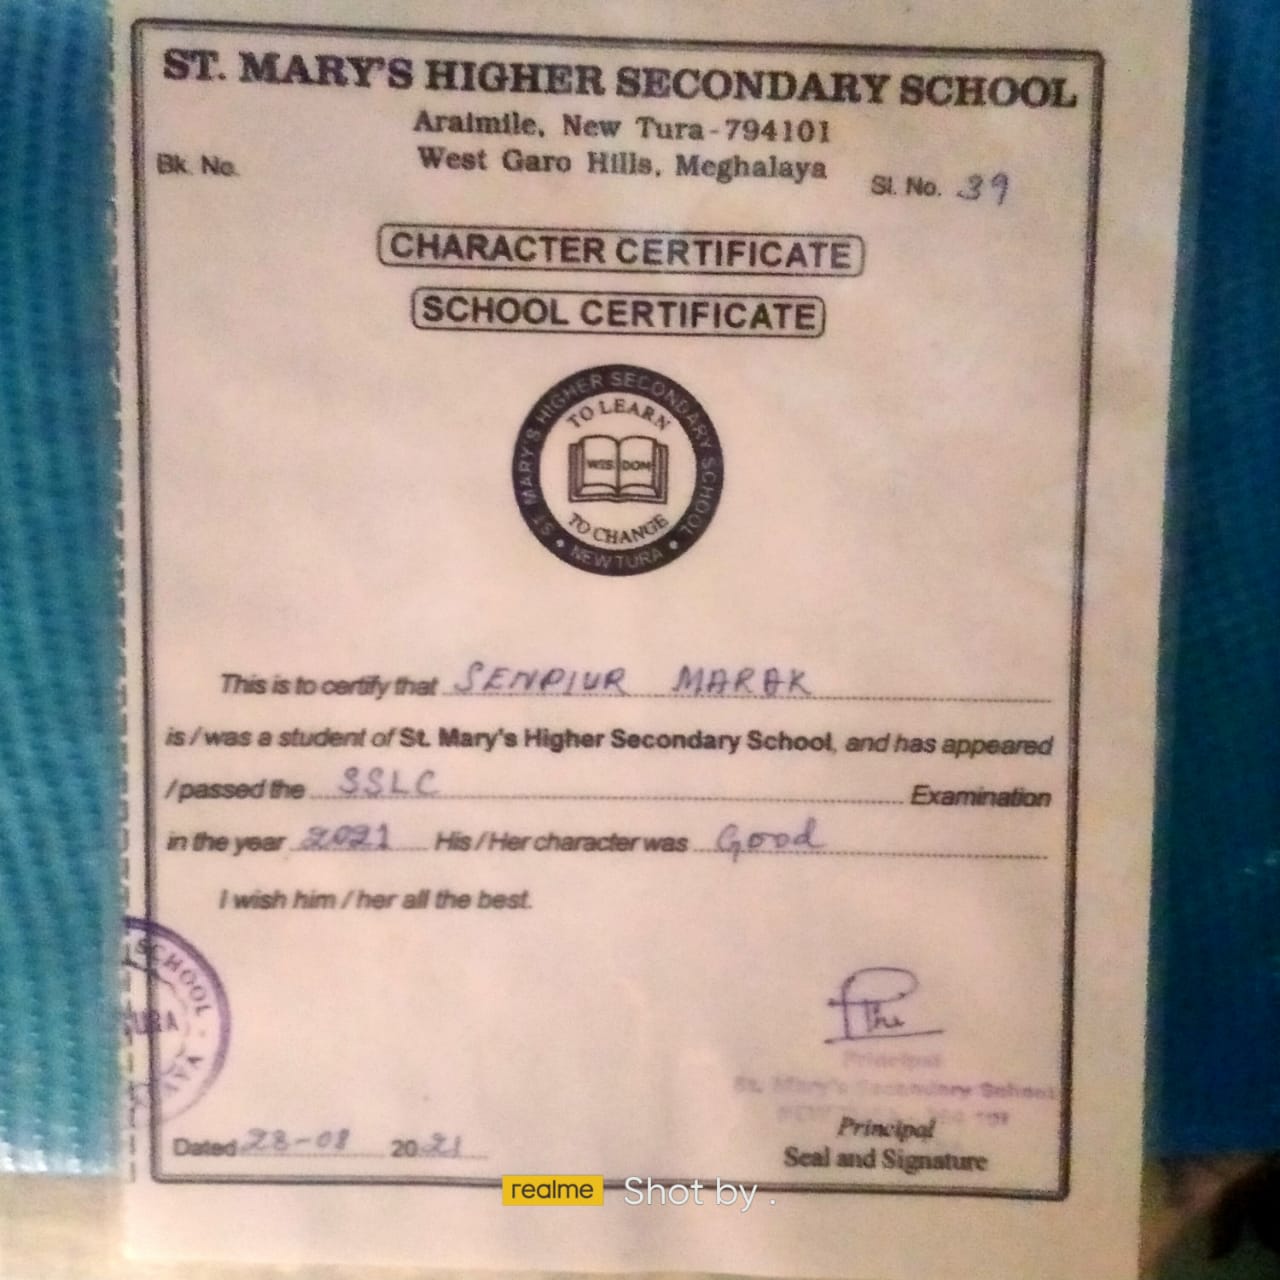 ST. MARY'S HIGHER SECONDARY SCHOOL
Araimile, New Tura-794101
West Garo Hills, Meghalaya
Bk. No.
Sl. No. 39
CHARACTER CERTIFICATE
SCHOOL CERTIFICATE
ST MARY'S HIGHER SECONDARY SCHOOL
TO LEARN
WISDOM
TO CHANGE
• NEW TURA •
This is to certify that SENPIUR MARAK
is / was a student of St. Mary's Higher Secondary School, and has appeared
/ passed the SSLC Examination
in the year 2021 His / Her character was Good
I wish him / her all the best.
SCHOOL
TURA
Principal
St. Mary's Secondary School
Dated 28-08 2021
Principal
Seal and Signature
realme Shot by .